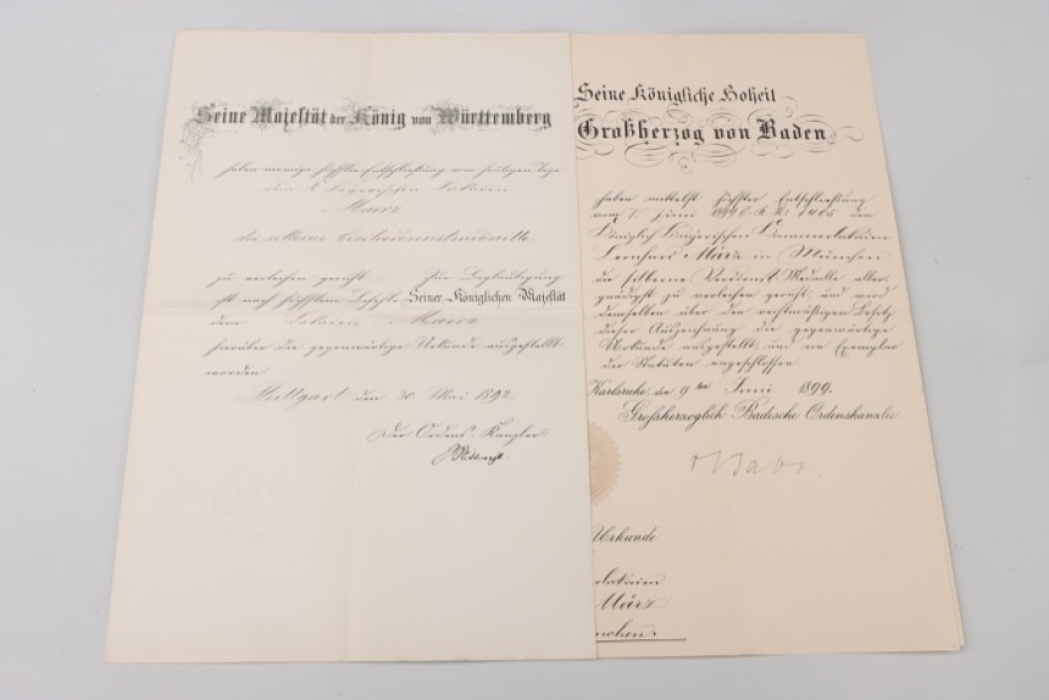 Seine Majestät der König von Württemberg
haben vermöge höchster Entschließung vom heutigen Tage
dem K. bayerischen Lakaien
Maerz
die silberne Civilverdienstmedaille
zu verleihen geruht. Zur Beglaubigung
ist nach höchstem Befehl Seiner Königlichen Majestät
dem Lakaien Maerz
hierüber die gegenwärtige Urkunde ausgestellt
worden.
Stuttgart den 30. Mai 1892.
Der Ordens-Kanzler:
Seine Königliche Hoheit
Großherzog von Baden
haben mittelst höchster Entschließung
vom 7. Juni 1899 No 1405 dem
Königlich Bayerischen Kammerlakaien
Leonhard März in München
die silberne Verdienst-Medaille aller-
gnädigst zu verleihen geruht, und wird
demselben über den rechtmäßigen Besitz
dieser Auszeichnung die gegenwärtige
Urkunde ausgestellt, und ein Exemplar
der Statuten angeschlossen.
Karlsruhe, den 9ten Juni 1899.
Großherzoglich Badische Ordenskanzlei
Urkunde
lakaien
März
nchen.